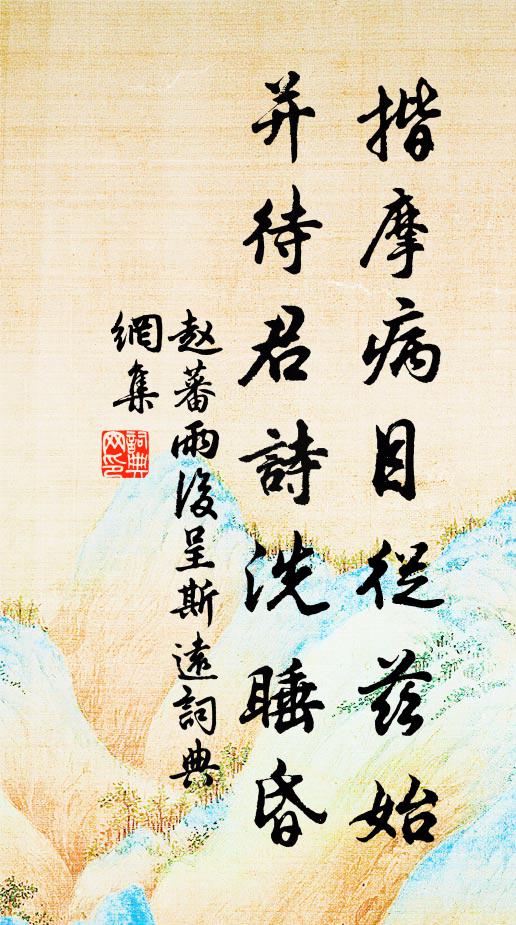 揩摩病目從茲始
并待君詩洗睡昏
赵蕃雨後呈斯遠詞典
網集
詞典
网印